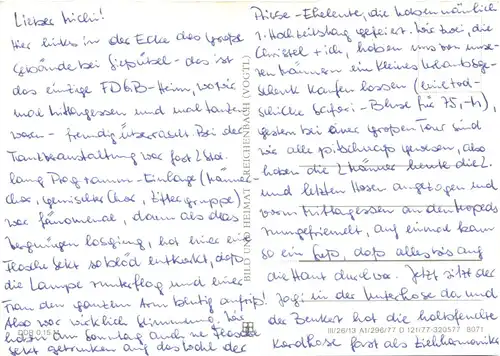 Lieber Michi!
Hier links in der Ecke das große
Gebäude bei Gießübel - das ist
das einzige FDGB-Heim, wo wir
mal Mittagessen und mal tanzen
waren - freudig überrascht. Bei der
Tanzveranstaltung war fast 2 Std.
lang Programm-Einlage (Männer-
chor, gemischter Chor, Zithergruppe)
war fänomenal, dann als das
Vergnügen losging, hat einer eine
Flasche Sekt so blöd entkorkt, daß
die Lampe runterflog und einer
Frau den ganzen Arm blutig aufriß!
Also war wirklich Stimmung. Wir
haben am Sonntag auch ne Flasche
Sekt getrunken auf das Wohl der
Eheleute, die haben nämlich
1. Hochzeitstag gefeiert. Wir zwei, die
Christel + ich, haben uns von unse-
ren Männern ein kleines Urlaubsge-
schenk kaufen lassen (eine tod-
schicke Safari-Bluse für 75,-M),
gestern bei einer großen Tour sind
wir alle pitschnaß gewesen, also
haben die 2 Männer heute die 2.
und letzten Hosen angezogen und
vorm Mittagessen an den
rumgefriemelt, auf einmal kam
so ein Guß, daß alles bis auf
die Haut durch war. Jetzt sitzt der
in der Unterhose da und
der hat die
Kordhose fast als Ziehharmonika
BILD UND HEIMAT REICHENBACH (VOGTL)
III/26/13 A1/296/77 D 121/77-320577 8071